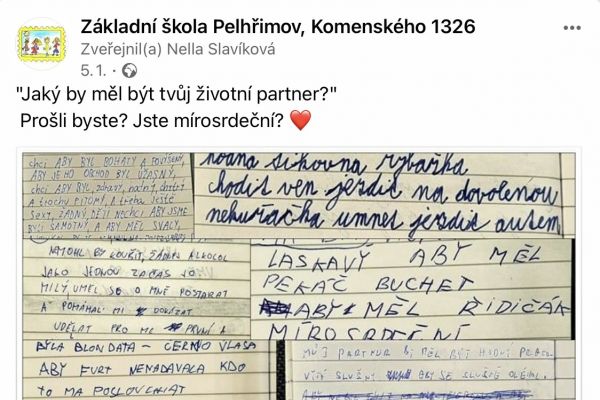 Základní škola Pelhřimov, Komenského 1326
Zveřejnil(a) Nella Slavíková
5. 1. ·
"Jaký by měl být tvůj životní partner?"
Prošli byste? Jste mírosrdeční? ❤️
chci ABY BYL BOHATÝ A
ABY JEHO OBCHOD BYL ÚŽASNÝ,
chci ABY BYL, zdravý, hodný, chytrý
A trochu PITOMÝ, A třeba ještě
sexy, ŽÁDNÝ DĚTI NECHCI ABY JSME
BYLI SAMOTNÝ, A ABY MĚL SVALY,
hodná šikovná rybařka
chodit ven jezdit na dovolenou
nekuřačka umnět jezdit autem
BY KOUŘIT, ŽÁDNIN ALKOCOL
JAKO JEDNOU ZAČAS JO
MILÝ UMĚL SE O MNĚ POSTARAT
A POMÁHAL MI DOKÁZAT
UDĚLAT PRO MĚ PRVNÍ A
LASKAVÝ ABY MĚL
PEKÁČ BUCHET
ABY MĚL ŘIDIČÁK
MÍROSRDĚNÍ
BYLA BLONDATA - CERNO VLASA
ABY FURT NENADAVALA KDO
TO MA POSLOUCHAT
MŮJ PARTNUR BI MĚL BÝT HODNÝ
SLUŠNÝ ABY SE SLUŠNĚ